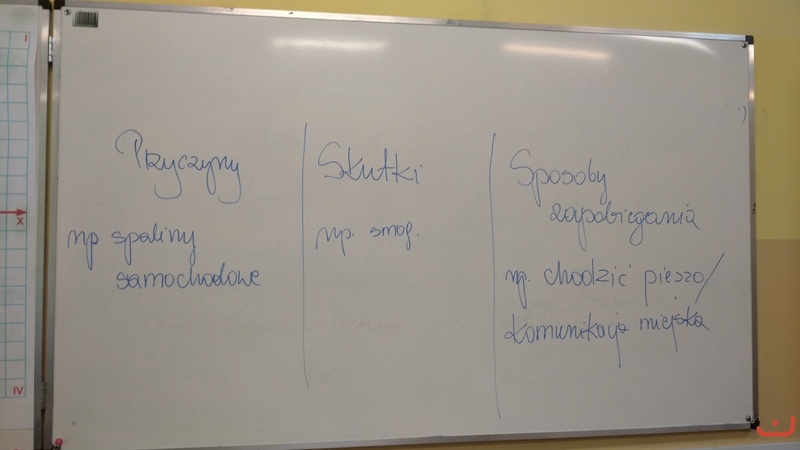 Przyczyny
np spaliny
samochodowe
Skutki
np. smog.
Sposoby
zapobiegania
np. chodzić pieszo/
komunikacja miejska
I
X
IV